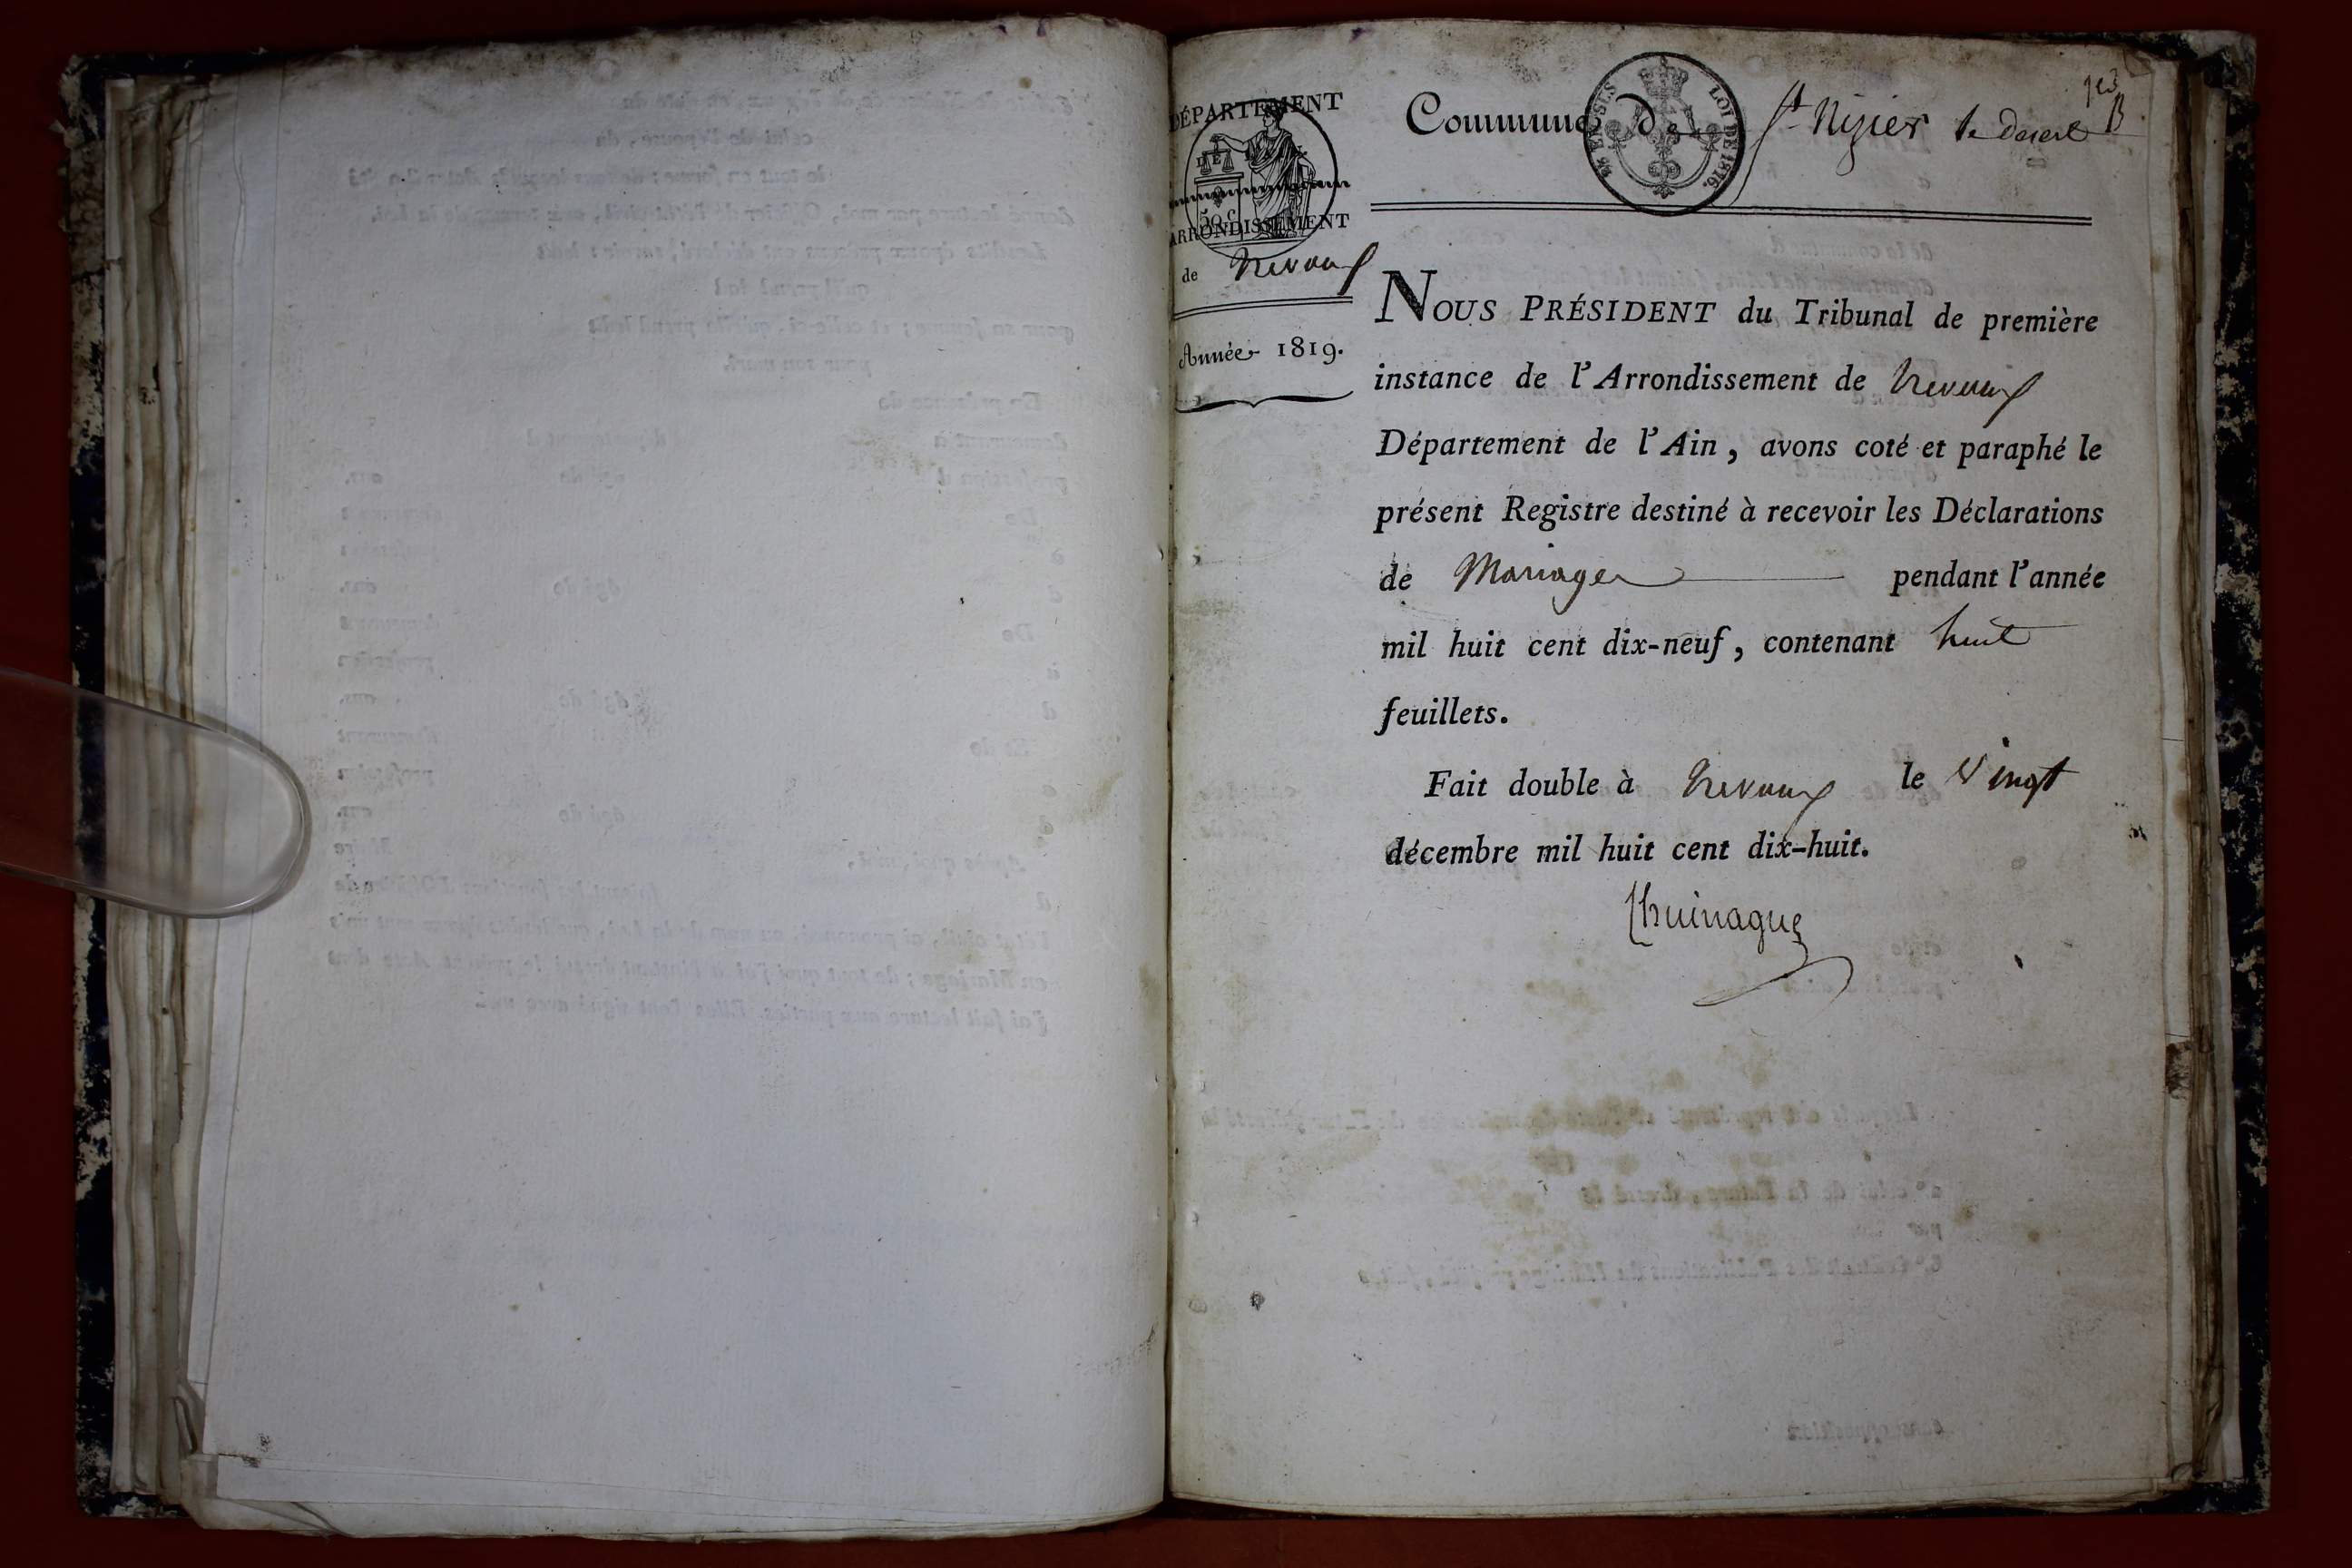 DÉPARTEMENT
DE L'AIN
50 c.
ARRONDISSEMENT
de Trevoux
Année 1819.
Commune de St Nizier le desert
LOI DE 1816.
NOUS PRÉSIDENT du Tribunal de première
instance de l'Arrondissement de Trevoux
Département de l'Ain, avons coté et paraphé le
présent Registre destiné à recevoir les Déclarations
de Mariages pendant l'année
mil huit cent dix-neuf, contenant huit
feuillets.
Fait double à Trevoux le vingt
décembre mil huit cent dix-huit.